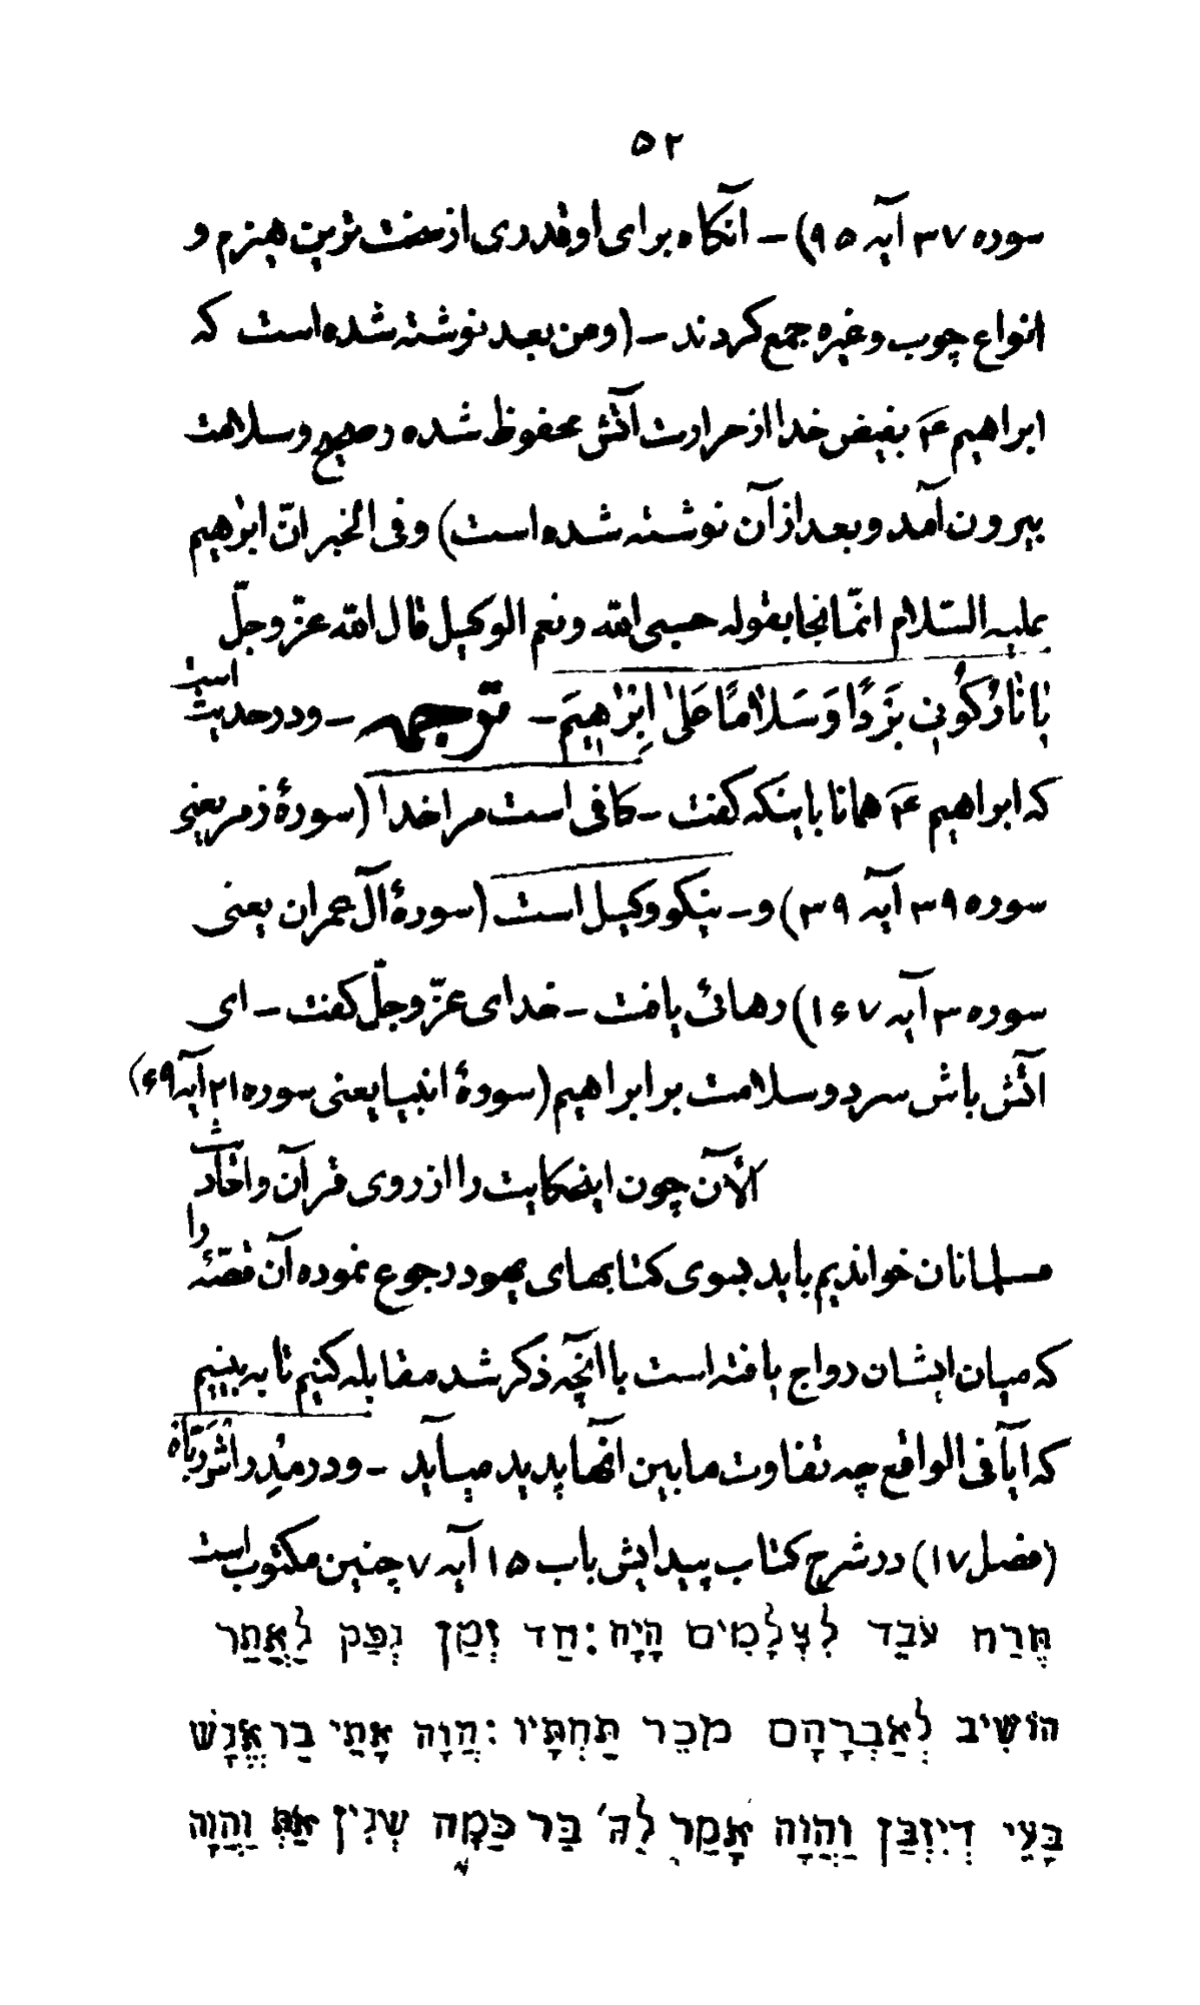 ۵۲
سوره ۳۷ آیه ۹۵) – آنکاه برای او قدری از سخت ترین هیزم و
انواع چوب وغیره جمع کردند – (ومن بعد نوشته شده است که
ابراهیم ع۴ بفیض خدا از حرارت آتش محفوظ شده وصحیح وسلامت
بیرون آمد وبعد از آن نوشته شده است) وفی الخبر انّ ابرٰهیم
علیه السّلام انّما نجا بقوله حسبی الله ونعم الوکیل قال الله عزّوجلّ
یٰا نٰارُ کُونِی بَرْدًا وَسَلٰامًا عَلیٰ اِبْرٰهِیمَ – ترجمه – ودر حدیث است
که ابراهیم ع۴ همانا باینکه کفت – کافی است مرا خدا (سورهٔ زمر یعنی
سوره ۳۹ آیه ۳۹) و – نیکو وکیل است (سورهٔ آل عمران یعنی
سوره ۳ آیه ۱۶۷) رهائی یافت – خدای عزّوجلّ کفت – ای
آتش باش سرد وسلامت بر ابراهیم (سورهٔ انبیا یعنی سوره ۲۱ آیه ۶۹)
الآن چون اینحکایت را از روی قرآن واحادیث
مسلمانان خواندیم باید بسوی کتابهای یهود رجوع نموده آن قصّهٔ را
که میان ایشان رواج یافته است با آنچه ذکر شد مقابله کنیم تا به بینیم
که آیا فی الواقع چه تفاوت مابین آنها پدید میآید – ودر مِدْراش رَبّاه
(فصل ۱۷) در شرح کتاب پیدایش باب ۱۵ آیه ۷ چنین مکتوب است
תֶּרַח עֹבֵד לִצְלָמִים הָיָה: חַד זְמַן נְפַּק לַאֲתַר
הוֹשִׁיב לְאַבְרָהָם מֹכֵר תַּחְתָּיו: הֲוָה אָתֵי בַר אֱנָשׁ
בָּעֵי דְיִזְבַּן וַהֲוָה אָמַר לֵהּ׳ בַּר כַּמָּה שְׁנִין אַתְּ וַהֲוָה